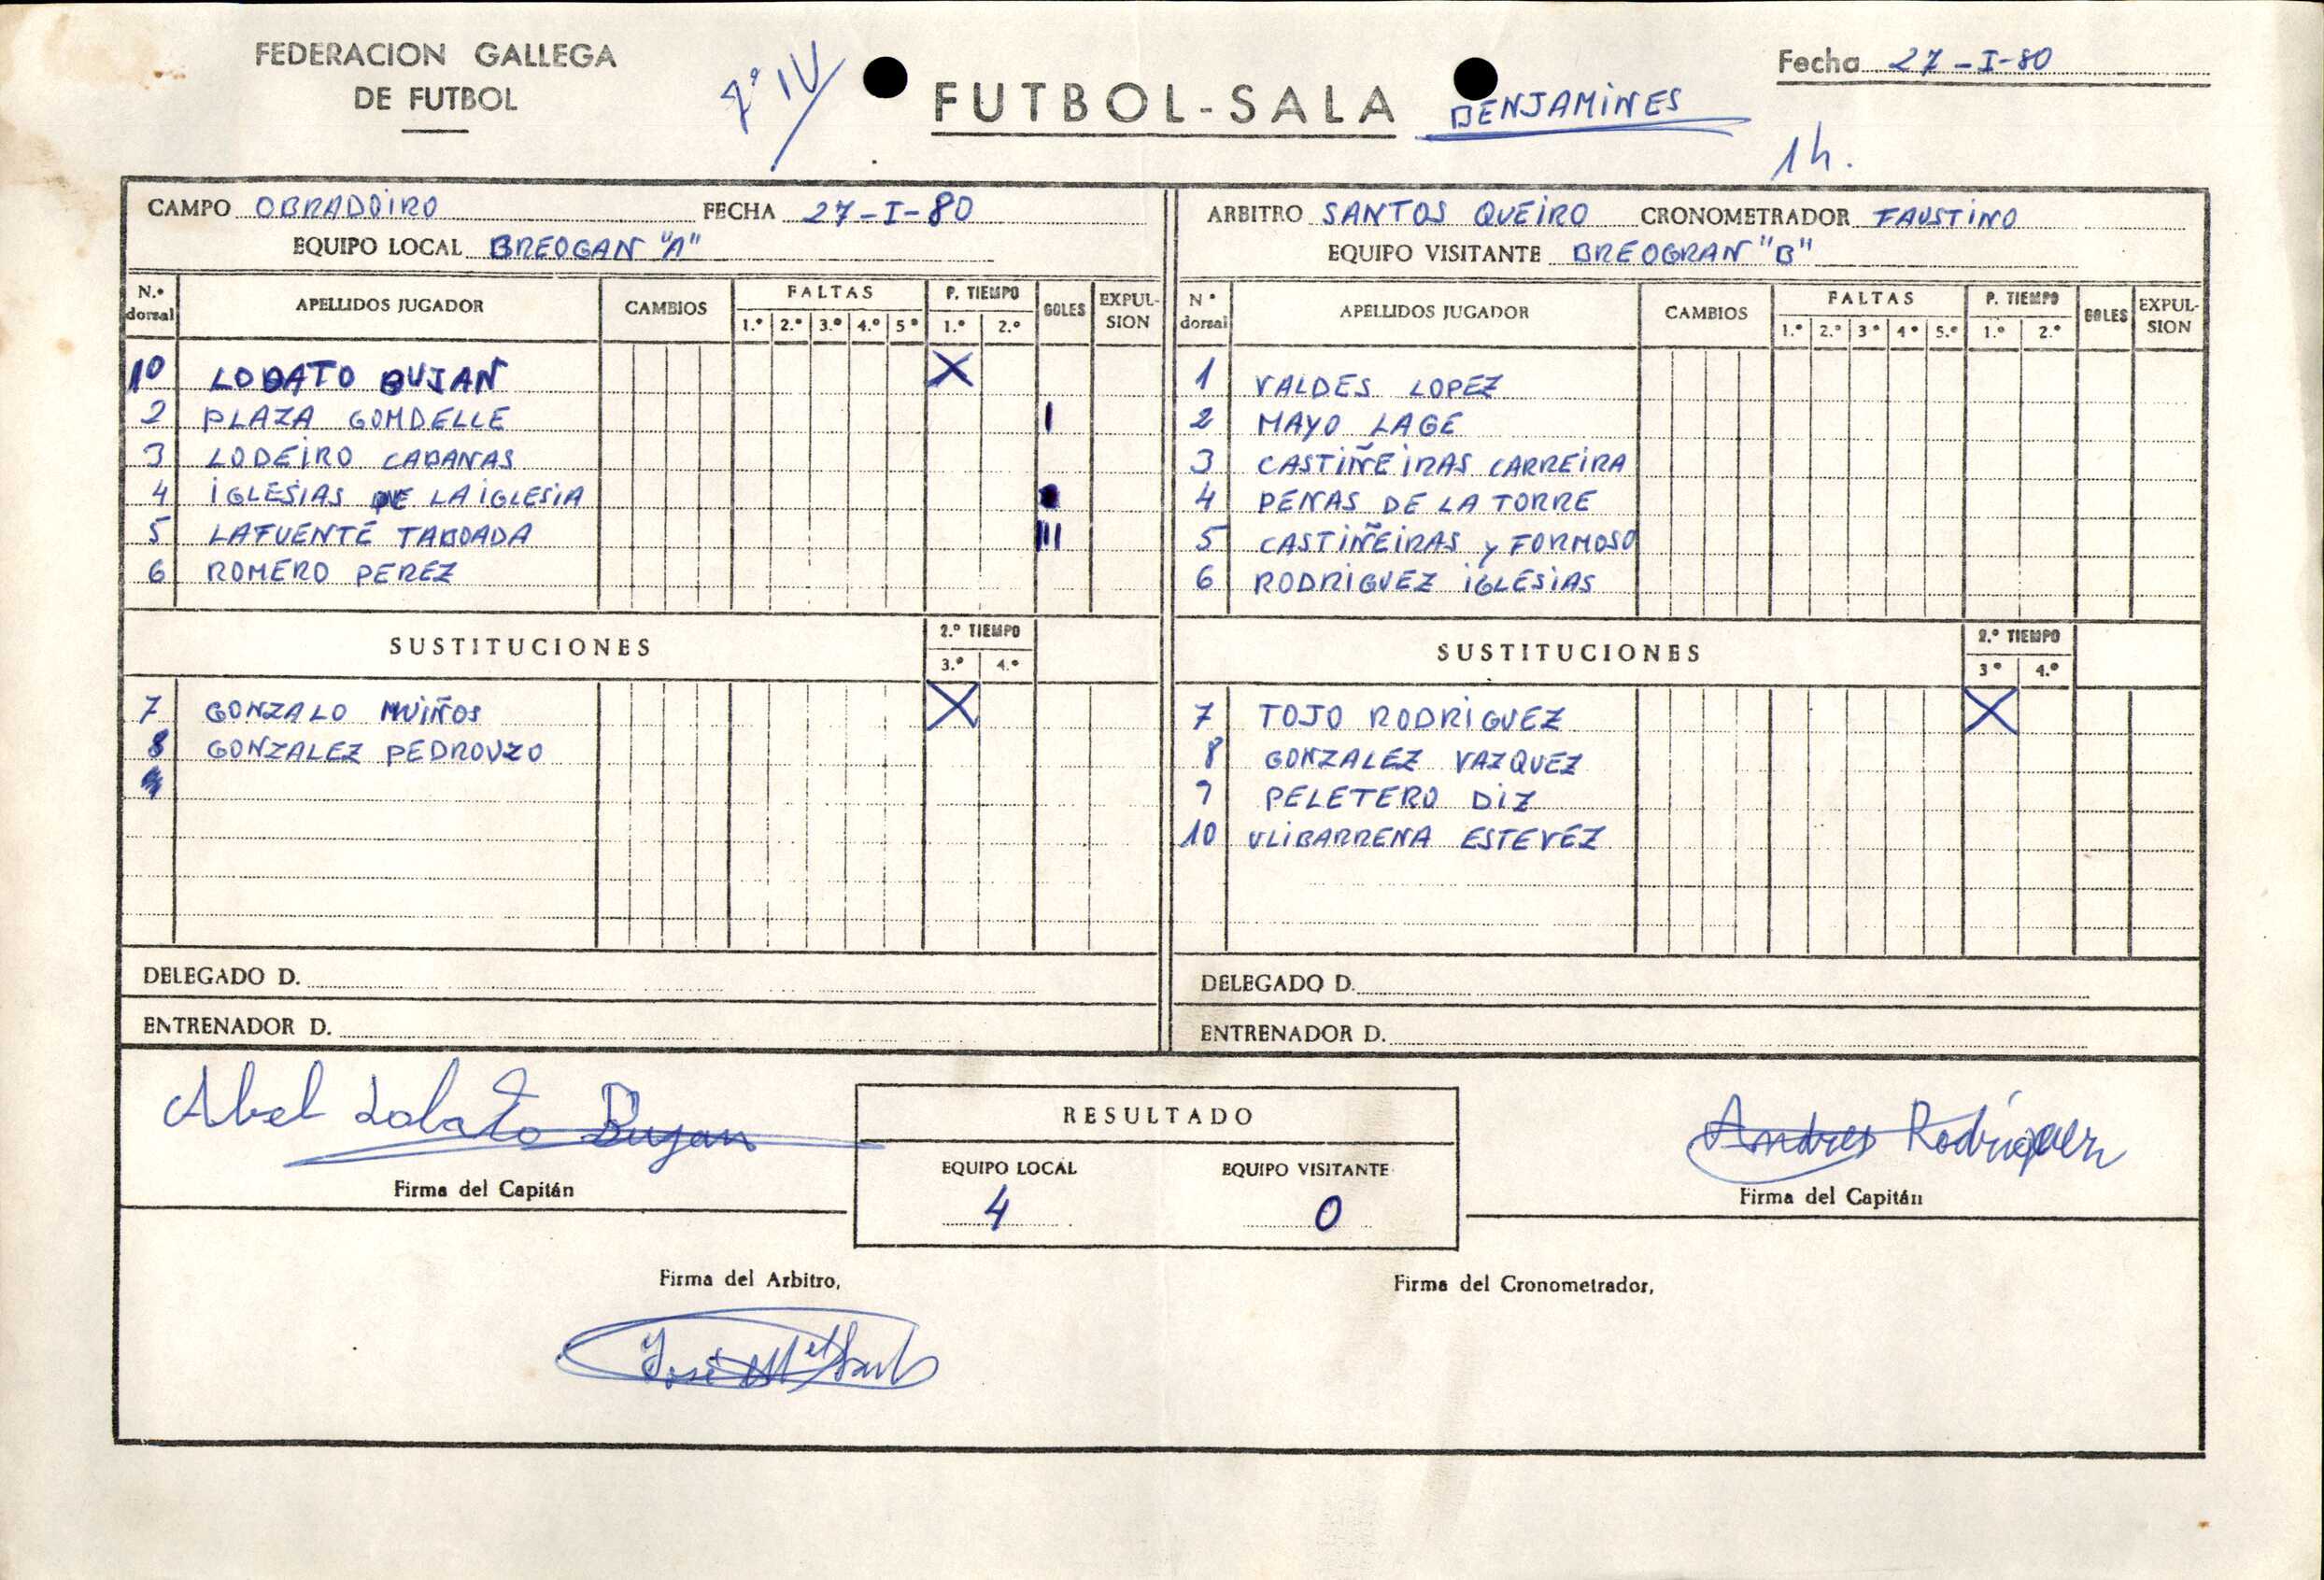 FEDERACION GALLEGA
DE FUTBOL
7º IV
FUTBOL-SALA BENJAMINES
Fecha 27-I-80
1h.
CAMPO OBRADOIRO FECHA 27-I-80
EQUIPO LOCAL BREOGAN "A"
N.º dorsal APELLIDOS JUGADOR CAMBIOS FALTAS 1.º 2.º 3.º 4.º 5º P. TIEMPO 1.º 2.º GOLES EXPUL-SION
10 LOBATO BUJAN X
2 PLAZA GOMDELLE I
3 LODEIRO CABANAS
4 IGLESIAS DE LA IGLESIA
5 LAFUENTE TABOADA III
6 ROMERO PEREZ
SUSTITUCIONES 2.º TIEMPO 3.º 4.º
7 GONZALO MUIÑOS X
8 GONZALEZ PEDROUZO
DELEGADO D.
ENTRENADOR D.
ARBITRO SANTOS QUEIRO CRONOMETRADOR FAUSTINO
EQUIPO VISITANTE BREOGRAN "B"
Nº dorsal APELLIDOS JUGADOR CAMBIOS FALTAS 1.º 2.º 3º 4º 5.º P. TIEMPO 1.º 2.º GOLES EXPUL-SION
1 VALDES LOPEZ
2 MAYO LAGE
3 CASTIÑEIRAS CARREIRA
4 PENAS DE LA TORRE
5 CASTIÑEIRAS y FORMOSO
6 RODRIGUEZ IGLESIAS
SUSTITUCIONES 2.º TIEMPO 3º 4.º
7 TOJO RODRIGUEZ X
8 GONZALEZ VAZQUEZ
9 PELETERO DIZ
10 ULIBARRENA ESTEVEZ
DELEGADO D.
ENTRENADOR D.
Abel Lobato Bujan
Firma del Capitán
RESULTADO
EQUIPO LOCAL EQUIPO VISITANTE
4 0
Andres Rodriguez
Firma del Capitán
Firma del Arbitro,
Firma del Cronometrador,
José